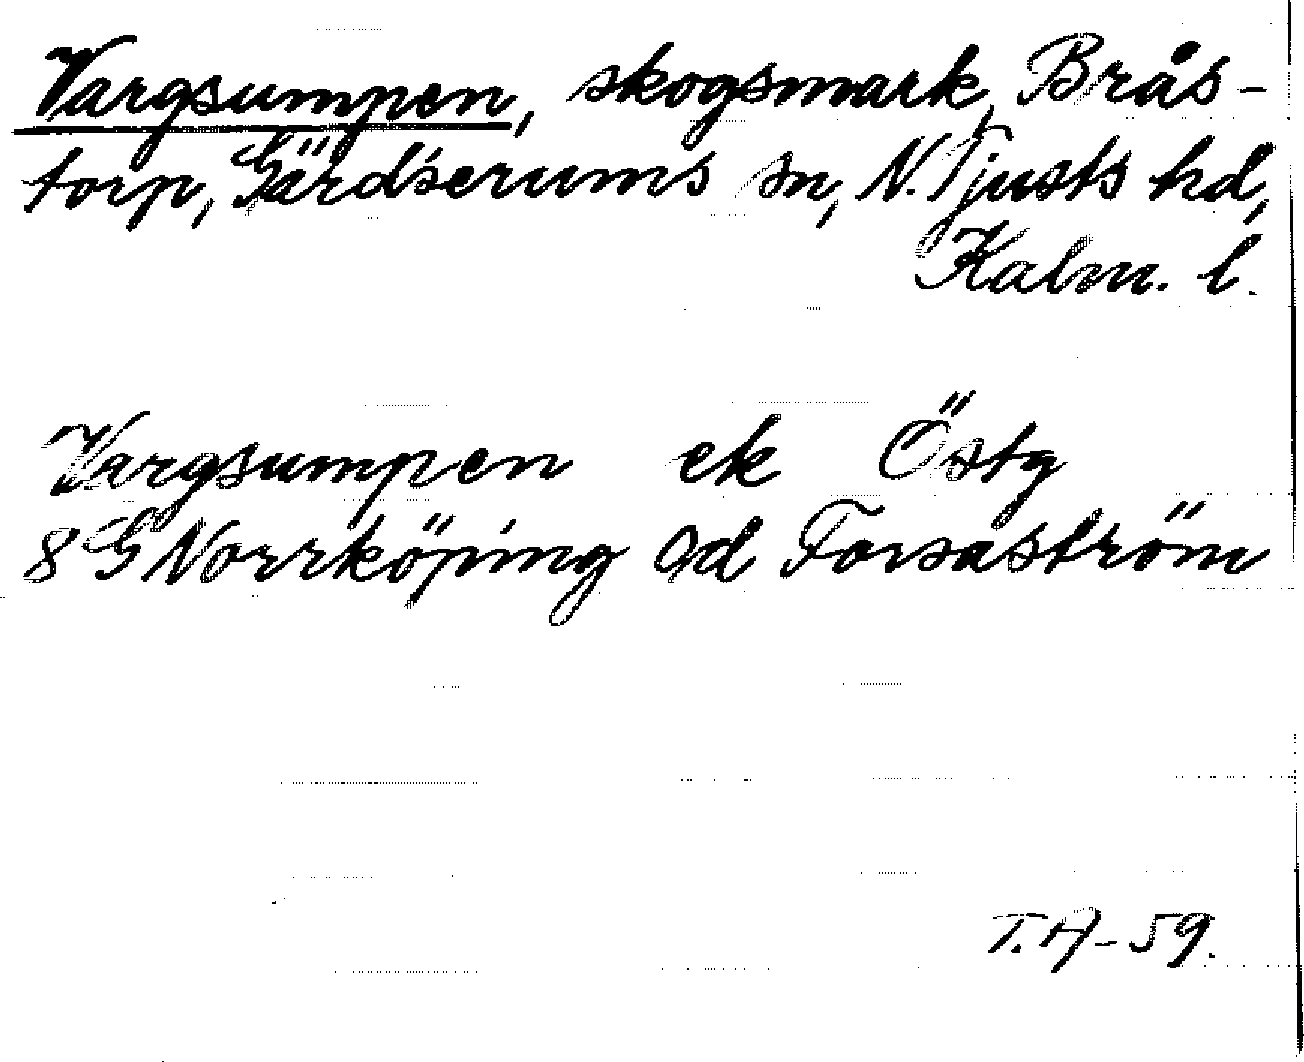 Vargsumpen, skogsmark, Brås-
torp, Gärdserums sn, N. Tjusts hd,
Kalm. l.
Vargsumpen ek Östg
8 G Norrköping 9d Forsaström
T. A-59.